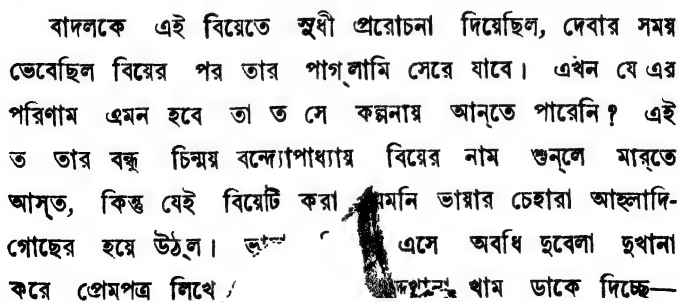 বাদলকে এই বিয়েতে সুধী প্ররোচনা দিয়েছিল, দেবার সময়
ভেবেছিল বিয়ের পর তার পাগ্‌লামি সেরে যাবে। এখন যে এর
পরিণাম এমন হবে তা ত সে কল্পনায় আন্‌তে পারেনি? এই
ত তার বন্ধু চিন্ময় বন্দ্যোপাধ্যায় বিয়ের নাম শুন্‌লে মার্‌তে
আস্‌ত, কিন্তু যেই বিয়েটি করা ভায়ার চেহারা আহ্লাদি-
গোছের হয়ে উঠ্‌ল। এসে অবধি দুবেলা দুখানা
করে প্রেমপত্র লিখে খাম ডাকে দিচ্ছে—